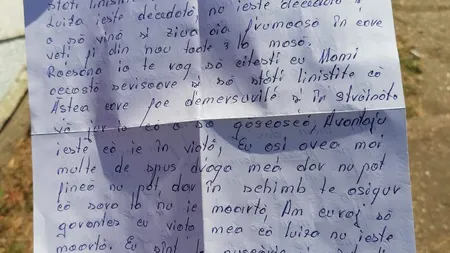 stati linistite
Luiza ieste decedată, nu ieste decedată
o să vină si ziua aia frumoasă în care
veti fi din nou toate 3 la masă.
Roxsana io te rog să citesti cu Mami
aceastā scrisoare si să stati linistite că
Astea care fac demersurile si în străinătate
vă jur io că o să găsească, Avantaju
ieste că ie în viată, Eu asi avea mai
multe de spus draga mea dar nu pot
fincă nu pot, dar în schimb te asigur
că sora ta nu ie moartă, Am curaj să
garantes cu viata mea că luiza nu ieste
moartă. Eu sînt la